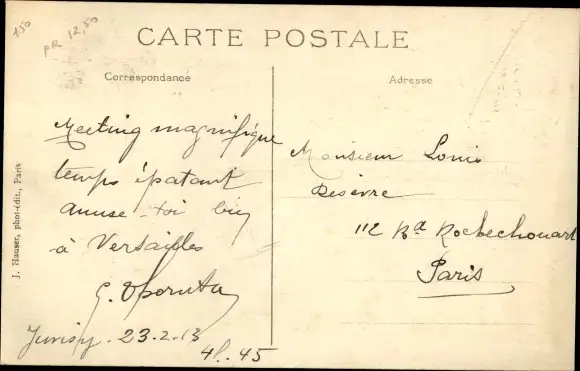 150
PR 12,50
CARTE POSTALE
Correspondance
Adresse
Meeting magnifique
temps épatant
amuse-toi bien
à Versailles
Juvisy. 23.2.13
4h.45
Monsieur Louis
112 Bd Rochechouart
Paris
J. Hauser, phot-édit., Paris